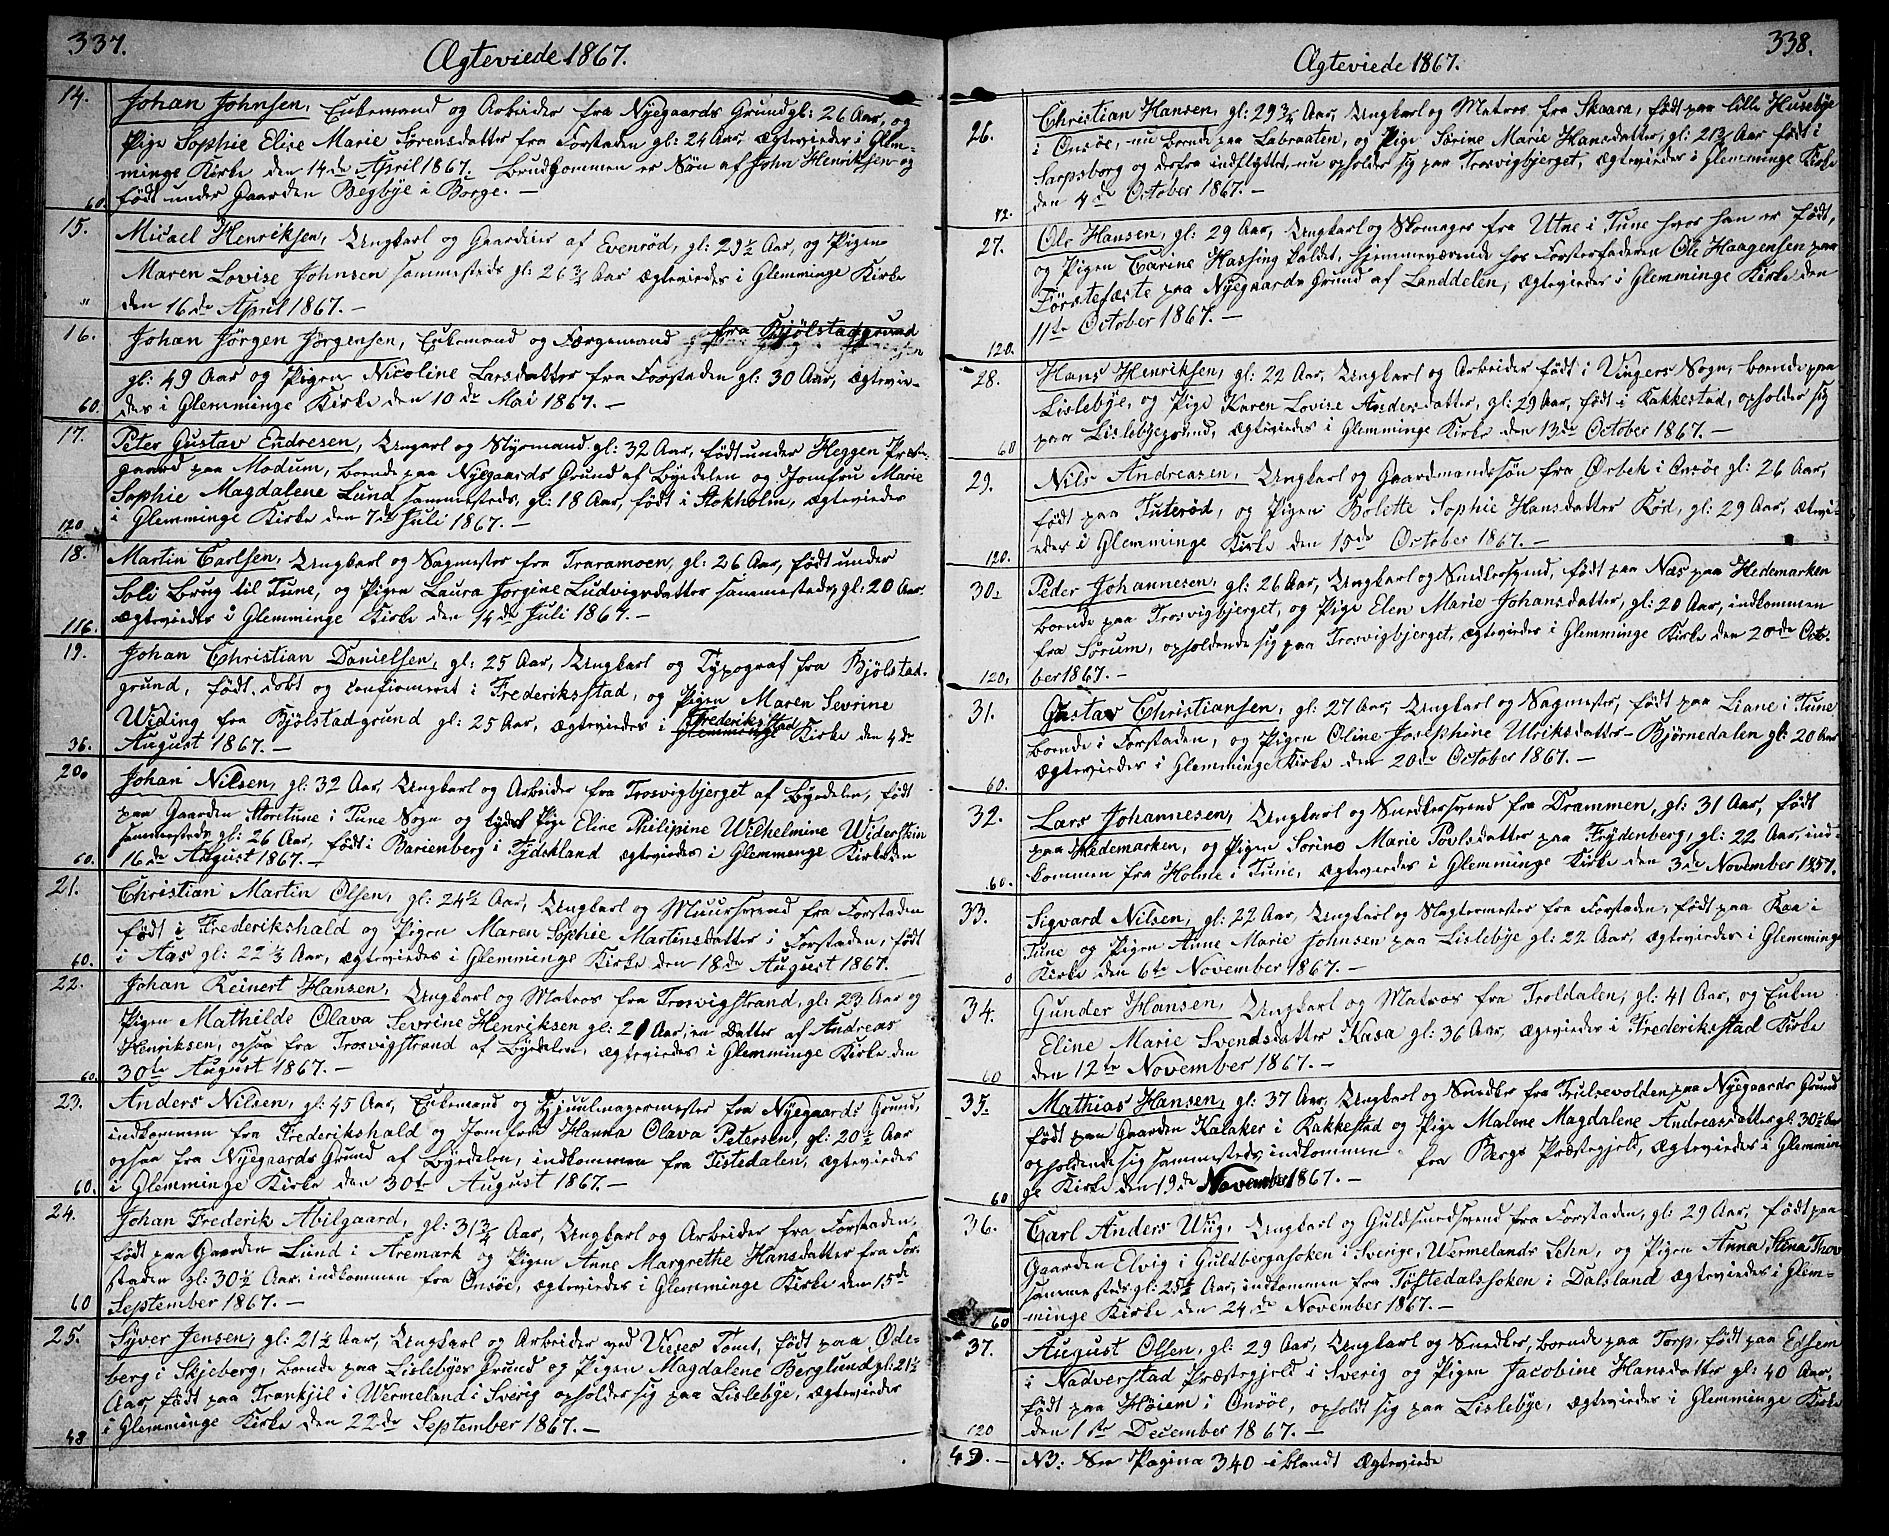 337.
Ægteviede 1867.
14.
Johan Johnsen, Enkemand og Arbeider fra Nyegaards Grund gl: 26 Aar, og
Pige Sophie Elise Marie Sørensdatter fra Forstaden gl: 24 Aar, ægtevieder i Glem-
minge Kirke den 14de April 1867. Brudgommen er Søn af John Henriksen og
født under Gaarden Begbye i Borge. —
60.
15.
Micael Henriksen, Ungkarl og Gaardeier af Evenrød, gl: 29½ Aar, og Pigen
Maren Lovise Johnsen sammesteds gl: 26¾ Aar ægtevieder i Glemminge Kirke
den 16de April 1867. —
"
16.
Johan Jørgen Jørgensen, Enkemand og Færgemand fra Kjølstadgrund
gl: 49 Aar og Pigen Nicoline Larsdatter fra Forstaden gl: 30 Aar, ægtevie-
des i Glemminge Kirke den 10de Mai 1867. —
60.
17.
Peter Gustav Endresen, Ungkarl og Styrmand gl: 32 Aar, født under Heggen Præste-
gaard paa Modum, boende paa Nyegaards Grund af Byedelen og Jomfru Marie
Sophie Magdalene Lund sammesteds, gl: 18 Aar, født i Stokholm, ægteviedes
i Glemminge Kirke den 7de Juli 1867. —
120
18.
Martin Carlsen, Ungkarl og Sagmester fra Traramoen, gl: 26 Aar, født under
Bli Brug til Tune, og Pigen Laura Jorgine Ludvigsdatter sammesteds, gl: 20 Aar
ægteviedes i Glemminge Kirke den 14de Juli 1867. —
116.
19.
Johan Christian Danielsen, gl: 25 Aar, Ungkarl og Typograf fra Kjølstad-
grund, født, døbt og confirmeret i Frederiksstad, og Pigen Maren Sevrine
Widing fra Kjølstadgrund gl: 25 Aar, ægteviedes i Frederiksstad Kirke den 4de
August 1867. —
36.
20.
Johan Nilsen, gl: 32 Aar, Ungkarl og Arbeider fra Trosvigbjerget af Byedelen, født
paa Gaarden Storetune i Tune Sogn og Pige Eline Philipine Wilhelmine Widerstein
sammesteds gl: 26 Aar, født i Marienberg i Tydskland ægteviedes i Glemmenge Kirke den
16de August 1867. —
60.
21.
Christian Martin Olsen, gl: 24½ Aar, Ungkarl og Muursvend fra Forstaden
født i Frederikshald og Pigen Maren Sophie Martinsdatter i Forstaden, født
i Aas gl: 22⅓ Aar, ægteviedes i Glemminge Kirke den 18de August 1867.
60.
22.
Johan Reinert Hansen, Ungkarl og Matros fra Trosvigstrand, gl: 23 Aar og
Pigen Mathilde Olava Sevrine Henriksen gl: 21 Aar, en Datter af Andreas
Henriksen, ogsaa fra Trosvigstrand af Byedelen, ægteviedes i Glemminge Kirke den
30te August 1867. —
60.
23.
Anders Nilsen, gl: 45 Aar, Enkemand og Hjuulmagermester fra Nyegaards Grund,
indkommen fra Frederikshald og Jomfru Hanna Olava Petersen, gl: 20½ Aar
ogsaa fra Nyegaards Grund af Byedelen, indkommen fra Tistedalen, ægteviedes
i Glemminge Kirke den 30te August 1867. —
60.
24.
Johan Frederik Abilgaard, gl: 31¾ Aar, Ungkarl og Arbeider fra Forstaden,
født paa Gaarden Lund i Aremark og Pigen Anne Margrethe Hansdatter fra For-
staden gl: 30½ Aar, indkommen fra Onsøe, ægteviedes i Glemminge Kirke den 15de
September 1867. —
60
25.
Syver Jensen, gl: 21½ Aar, Ungkarl og Arbeider ved Tomt, født paa Øde-
berg i Skjeberg, boende paa Lislebyes Grund og Pigen Magdalene Berglund gl: 21½
Aar, født paa Trankjil i Wermeland i Sverig opholder sig paa Lislebye, ægteviedes
i Glemminge Kirke den 22de September 1867. —
48
338.
Ægteviede 1867.
26.
Christian Hansen, gl: 29¾ Aar, Ungkarl og Matros fra Skaara, født paa lille Husebye
i Onsøe, nu boende paa Labraaten, og Pige Sørine Marie Hansdatter, gl: 21¾ Aar født i
Sarpsborg og derfra indflyttet, nu opholder sig paa Trosvigbjerget, ægteviedes i Glemminge Kirke
den 4de October 1867. —
72.
27.
Ole Hansen, gl: 29 Aar, Ungkarl og Skomager fra Utne i Tune hvor han er født,
og Pigen Carine Hassing kaldet, hjemmeværende hos Forsterfaderen Ole Haagensen paa
Førstefæste paa Nyegaards Grund af Landdelen, ægteviedes i Glemminge Kirke den
11te October 1867. —
120.
28.
Hans Henriksen, gl: 22 Aar, Ungkarl og Arbeider født i Vingers Sogn, boende paa
Lislebye, og Pige Karen Lovise Andersdatter, gl: 29 Aar, født i Rakkestad, opholder sig
paa Lislebyegrund, ægteviedes i Glemminge Kirke den 13de October 1867. —
60
29.
Nils Andreasen, Ungkarl og Gaardmandssøn fra Ørbek i Onsøe gl: 26 Aar,
født paa Tuterød, og Pigen Bolette Sophie Hansdatter Rød, gl: 29 Aar, ægtevi-
edes i Glemminge Kirke den 15de October 1867. —
120.
30.
Peder Johannesen, gl: 26 Aar, Ungkarl og Snedkersvend, født paa Næs paa Hedemarken
boende paa Trosvigbjerget, og Pige Elen Marie Johansdatter, gl: 20 Aar, indkommen
fra Sørum, opholdende sig paa Trosvigbjerget, ægteviedes i Glemminge Kirke den 20de Octo-
ber 1867. —
120.
31.
Gustav Christiansen, gl: 27 Aar, Ungkarl og Sagmester, født paa Liane i Tune
boende i Forstaden, og Pigen Oline Josephine Ulriksdatter – Bjørnedalen gl: 20 Aar
ægteviedes i Glemminge Kirke den 20de October 1867. —
60.
32.
Lars Johannesen, Ungkarl og Snedkersvend fra Drammen, gl: 31 Aar, født
paa Hedemarken, og Pigen Sørine Marie Povlsdatter paa Frydenberg, gl: 22 Aar, ind-
kommen fra Holme i Tune, ægteviedes i Glemminge Kirke den 3de November 1857.
60.
33.
Sigvard Nilsen, gl: 22 Aar, Ungkarl og Slagtermester fra Forstaden, født paa Raa i
Tune og Pigen Anne Marie Johnsen paa Lislebye gl: 22 Aar, ægteviedes i Glemminge
Kirke den 6te November 1867. —
0
34.
Gunder Hansen, Ungkarl og Matros fra Troldalen, gl: 41 Aar, og Enken
Eline Marie Svendsdatter Kasa gl: 36 Aar, ægteviedes i Frederiksstad Kirke
den 12te November 1867. —
60
35.
Mathias Hansen, gl: 37 Aar, Ungkarl og Snedker fra paa Nyegaards Grund
født paa Gaarden Kalaker i Rakkestad og Pige Malene Magdalene Andreasdatter gl: 30½ Aar
opholdende sig sammesteds indkommen fra Bergs Præstegjeld, ægteviedes i Glemmin-
ge Kirke den 19de November 1867. —
60
36.
Carl Anders Uug, Ungkarl og Guldsmedsvend fra Forstaden, gl: 29 Aar, født paa
Gaarden Elvig i Guldbergasoken i Sverige, Wermelands Lehn, og Pigen Anna Stina Thov
sammesteds gl: 25½ Aar, indkommen fra Töftedalssoken i Dalsland ægteviedes i Glem-
minge Kirke den 24de November 1867. —
60
37.
August Olsen, gl: 29 Aar, Ungkarl og Snedker, boende paa Torp, født paa Edsem
i Nadverstad Præstegjeld i Sverig og Pigen Jacobine Hansdatter gl: 40 Aar,
født paa Høiem i Onsøe, opholdt sig paa Lislebye, ægteviedes i Glemminge Kirke
den 1ste December 1867. —
120
49. —
NB: See Pagina 340 iblandt Ægteviede